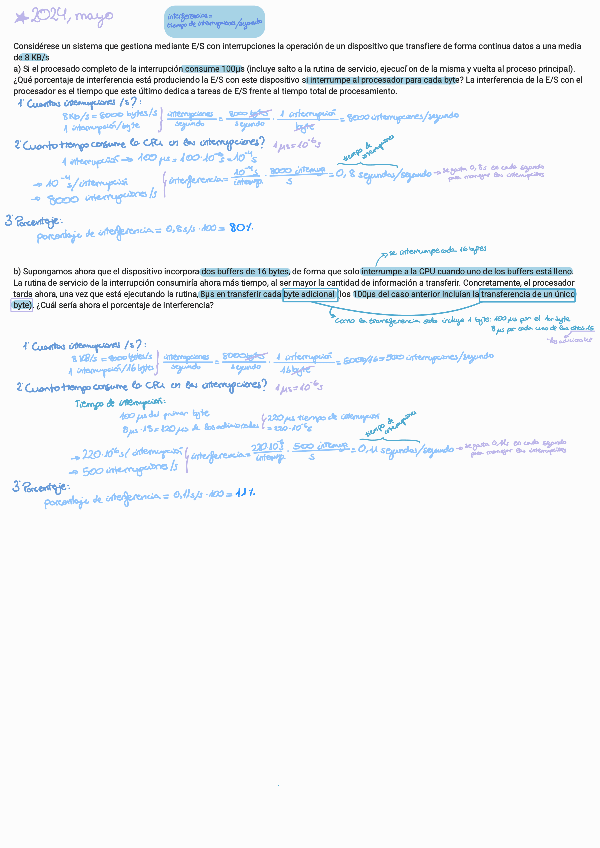 ★ 2024, mayo
interferencia =
tiempo de interrupciones/segundo
Considérese un sistema que gestiona mediante E/S con interrupciones la operación de un dispositivo que transfiere de forma continua datos a una media
de 8 KB/s
a) Si el procesado completo de la interrupción consume 100µs (incluye salto a la rutina de servicio, ejecuci´on de la misma y vuelta al proceso principal).
¿Qué porcentaje de interferencia está produciendo la E/S con este dispositivo si interrumpe al procesador para cada byte? La interferencia de la E/S con el
procesador es el tiempo que este último dedica a tareas de E/S frente al tiempo total de procesamiento.
1º Cuantas interrupciones /s?:
8KB/s = 8000 bytes/s
1 interrupción/byte
interrupciones/segundo = 8000 bytes/segundo · 1 interrupción/byte = 8000 interrupciones/segundo
2º Cuanto tiempo consume la CPU en las interrupciones? 1µs = 10⁻⁶s
1 interrupción → 100 µs = 100·10⁻⁶s = 10⁻⁴s
tiempo de interrupción
→ 10⁻⁴ s/interrupción
→ 8000 interrupciones/s
interferencia = 10⁻⁴s/interrup · 8000 interrup/s = 0,8 segundos/segundo → se gasta 0,8s en cada segundo
para manejar las interrupciones
3º Porcentaje:
porcentaje de interferencia = 0,8s/s · 100 = 80%
→ se interrumpe cada 16 bytes
b) Supongamos ahora que el dispositivo incorpora dos buffers de 16 bytes, de forma que solo interrumpe a la CPU cuando uno de los buffers está lleno.
La rutina de servicio de la interrupción consumiría ahora más tiempo, al ser mayor la cantidad de información a transferir. Concretamente, el procesador
tarda ahora, una vez que está ejecutando la rutina, 8µs en transferir cada byte adicional (los 100µs del caso anterior incluían la transferencia de un único
byte). ¿Cuál sería ahora el porcentaje de interferencia?
como la transferencia solo incluye 1 byte: 100 µs por el 1er byte
8 µs por cada uno de los otros 15
adicionales
1º Cuantas interrupciones /s?:
8 KB/s = 8000 bytes/s
1 interrupción/16 bytes
interrupciones/segundo = 8000 bytes/segundo · 1 interrupción/16 bytes = 8000/16 = 500 interrupciones/segundo
2º Cuanto tiempo consume la CPU en las interrupciones? 1µs = 10⁻⁶s
Tiempo de interrupción:
100 µs del primer byte
8 µs · 15 = 120 µs de los adicionales
220 µs tiempo de interrupción
= 220·10⁻⁶s
tiempo de interrupción
→ 220·10⁻⁶s/interrupción
→ 500 interrupciones/s
interferencia = 220·10⁻⁶/interrup · 500 interrup/s = 0,11 segundos/segundo → se gasta 0,11s en cada segundo
para manejar las interrupciones
3º Porcentaje:
porcentaje de interferencia = 0,11s/s · 100 = 11%